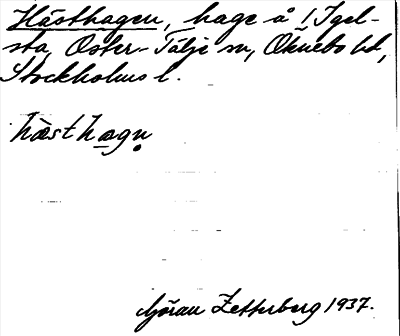 Hästhagen, hage å 1 Igel-
sta, Öster-Tälje sn, Öknebo hd,
Stockholms l.
hæ̀sthagn̥
Göran Zetterberg 1937.